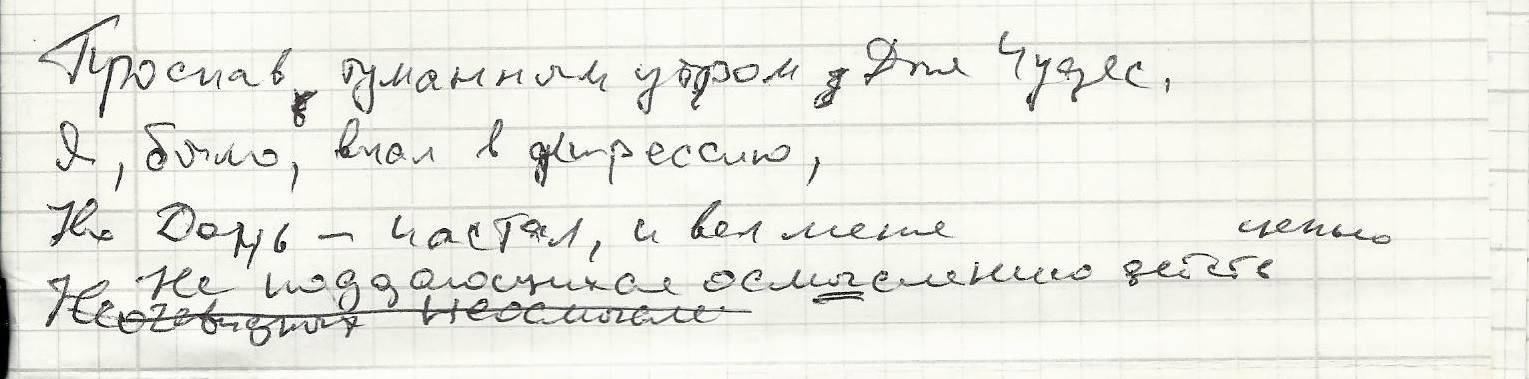 Проспав туманным утром Дня Чудес,
Я, было, впал в депрессию,
Но День – настал, и вел меня цепью
Не поддающихся осмыслению действ
Неочевидных Неосмысле